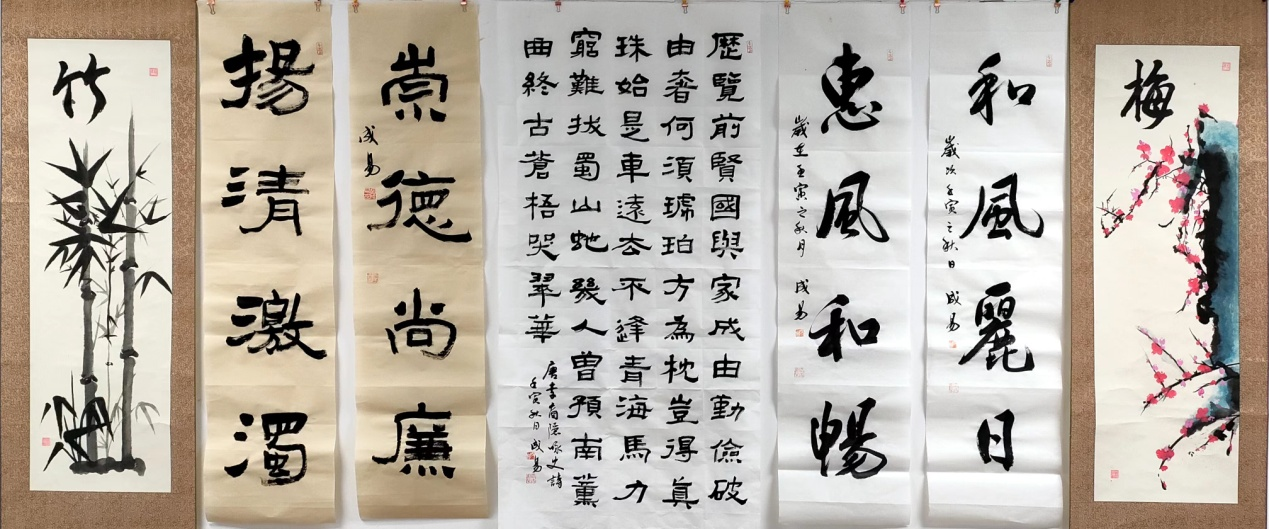 梅
和風麗日
歲次壬寅之秋日 成易
惠風和暢
歲在壬寅之秋月 成易
歷覽前賢國與家成由勤儉破
由奢何須琥珀方為枕豈得真
珠始是車遠去不逢青海馬力
窮難拔蜀山蛇幾人曾預南薰
曲終古蒼梧哭翠華
唐李商隱詠史詩
壬寅秋日 成易
崇德尚廉
成易
揚清激濁
竹